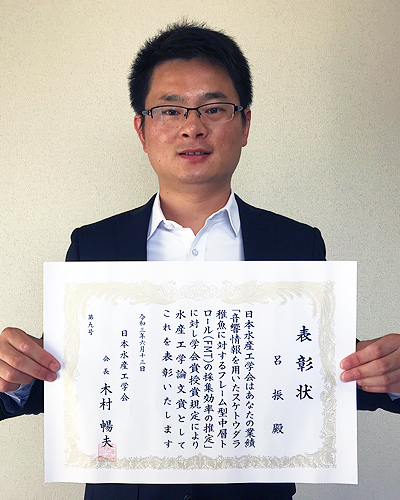 表彰状
呂振殿
日本水産工学会はあなたの業績
「音響情報を用いたスケトウダラ
稚魚に対するフレーム型中層ト
ロール(FMT)の採集効率の推定」
に対し学会賞授賞規定により
水産工学論文賞として
これを表彰いたします
令和三年六月十二日
日本水産工学会
会長 木村暢夫
第九号